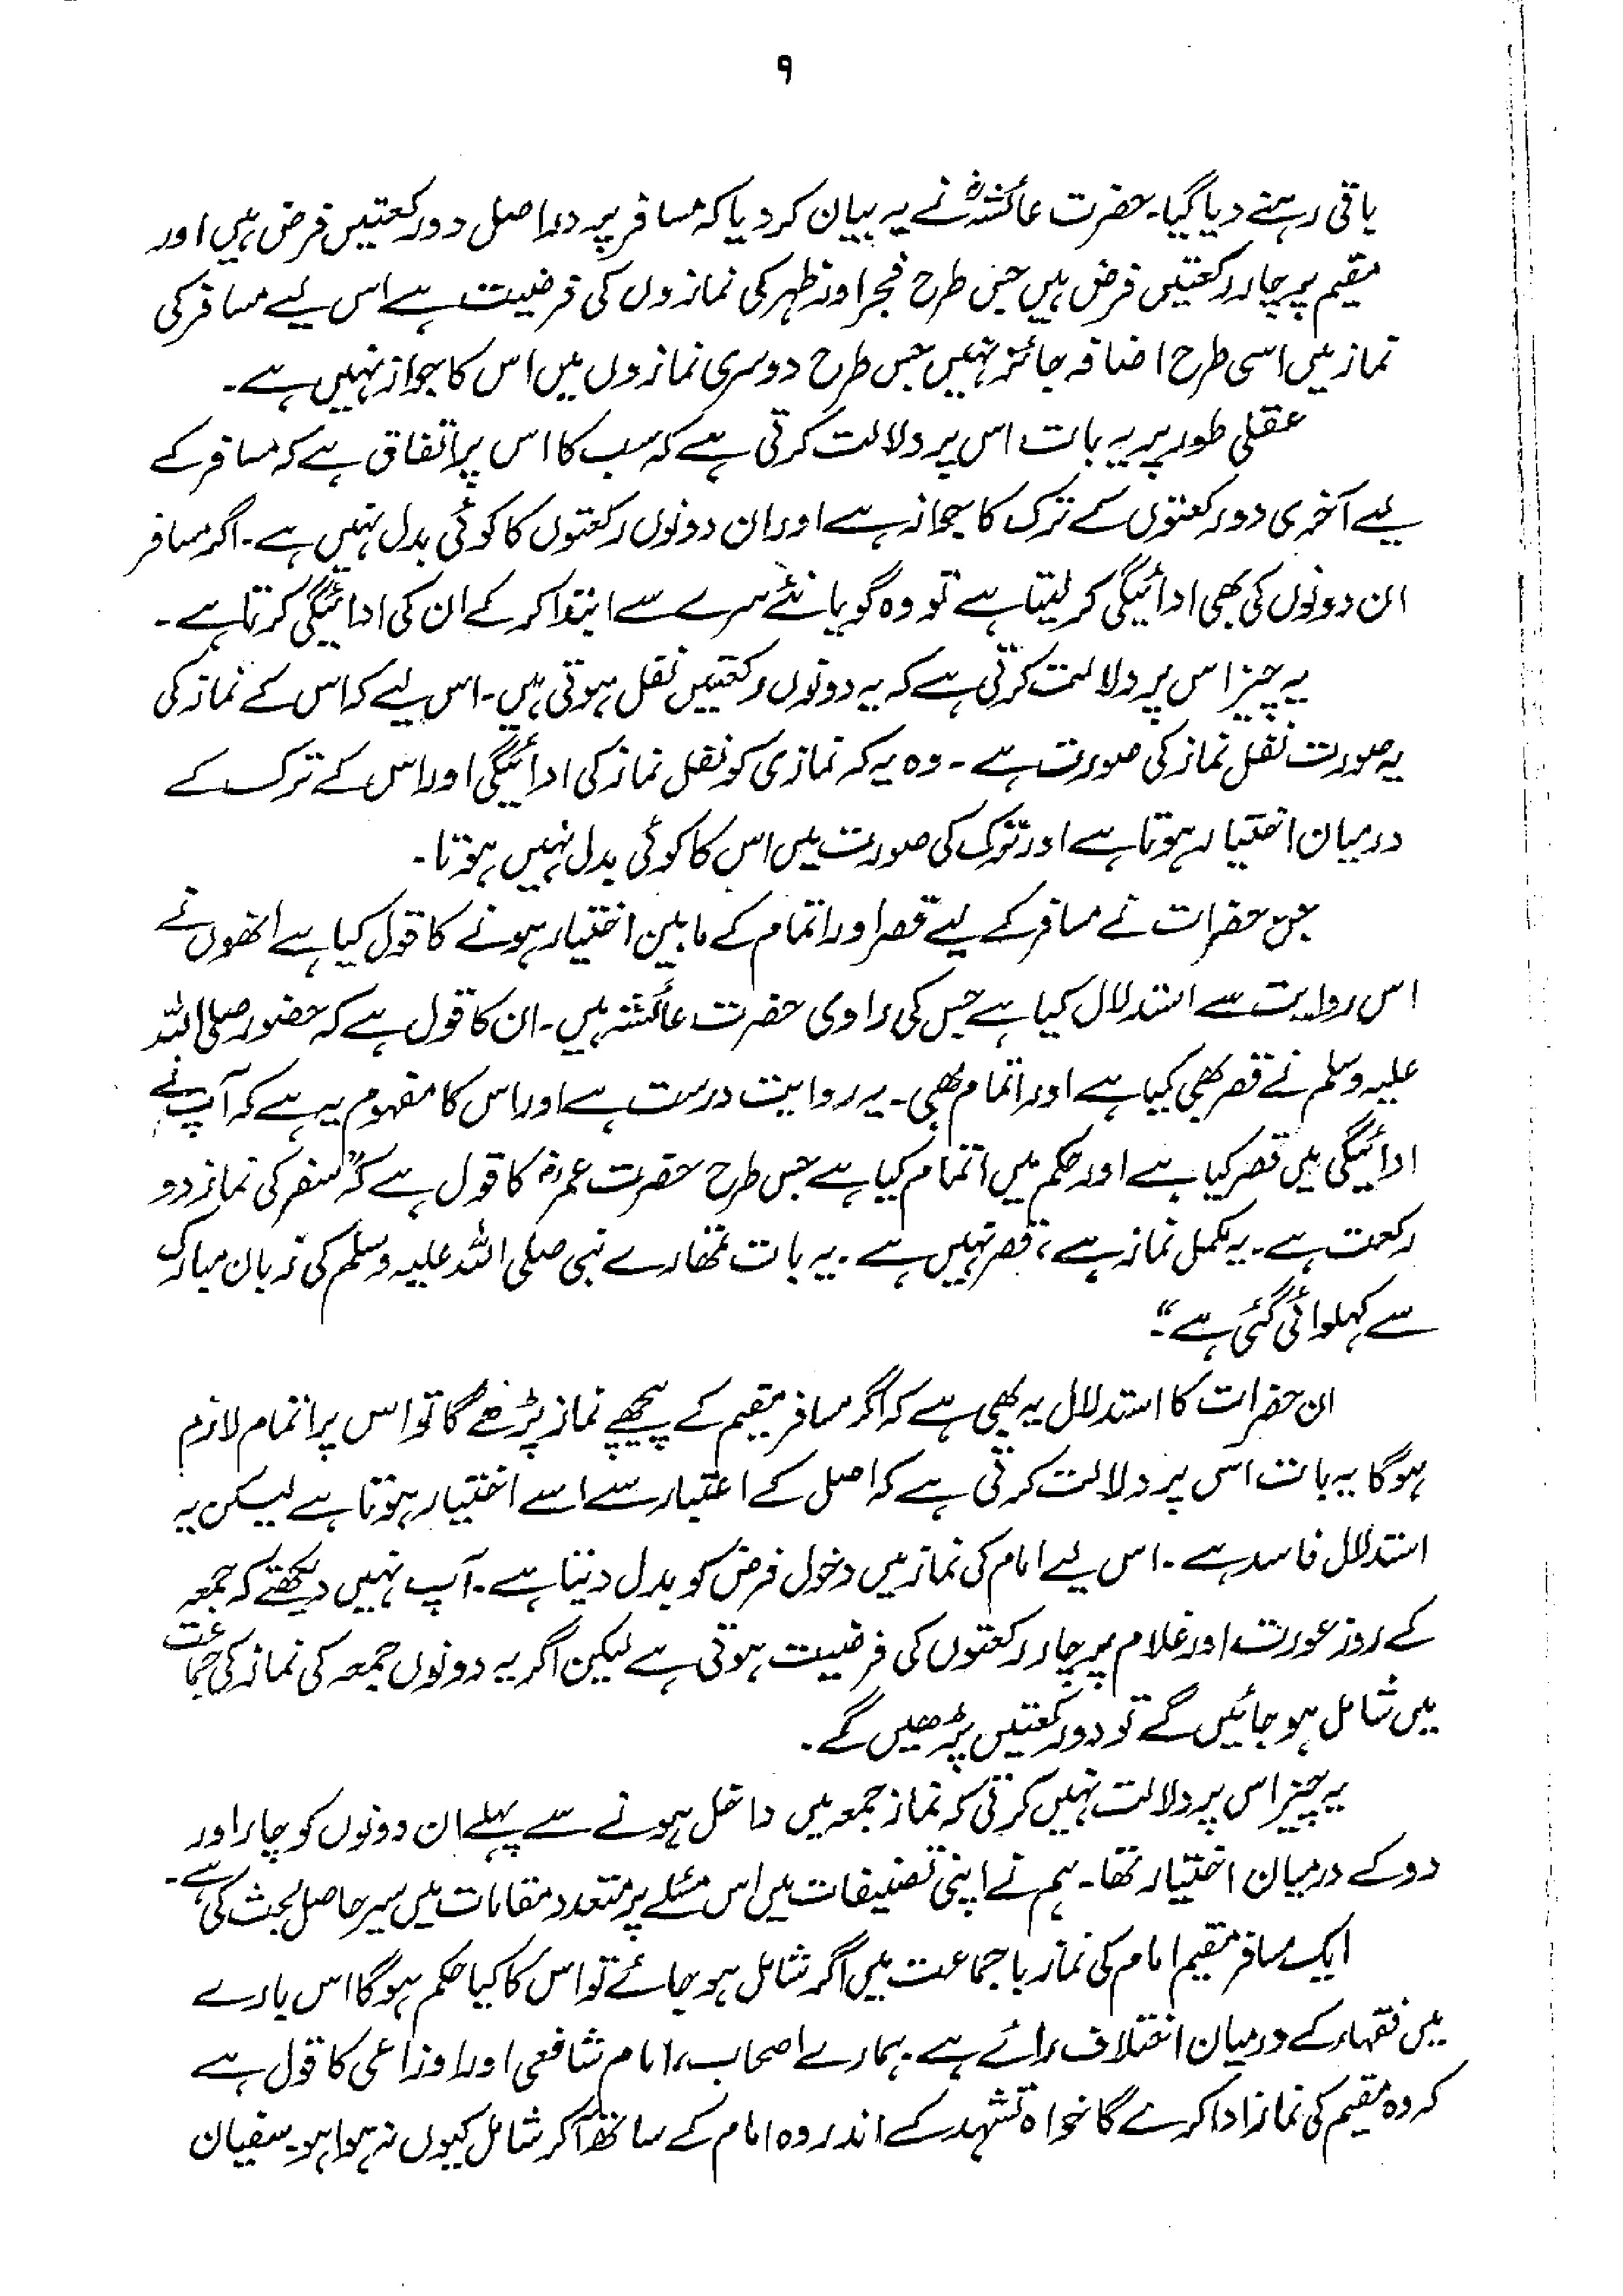 ۹
باقی رہنے دیا گیا۔ حضرت عائشہؓ نے یہ بیان کر دیا کہ مسافر پر دراصل دو رکعتیں فرض ہیں اور
مقیم پر چار رکعتیں فرض ہیں جس طرح فجر اور ظہر کی نمازوں کی فرضیت ہے اس لیے مسافر کی
نماز میں اسی طرح اضافہ جائز نہیں جس طرح دوسری نمازوں میں اس کا جواز نہیں ہے۔
عقلی طور پر یہ بات اس پر دلالت کرتی ہے کہ سب کا اس پر اتفاق ہے کہ مسافر کے
لیے آخری دو رکعتوں کے ترک کا جواز ہے اور ان دونوں رکعتوں کا کوئی بدل نہیں ہے۔ اگر مسافر
ان دونوں کی بھی ادائیگی کر لیتا ہے تو وہ گویا نئے سرے سے ابتدا کر کے ان کی ادائیگی کرتا ہے۔
یہ چیز اس پر دلالت کرتی ہے کہ یہ دونوں رکعتیں نفل ہوتی ہیں۔ اس لیے کہ اس کے نماز کی
یہ صورت نفل نماز کی صورت ہے۔ وہ یہ کہ نمازی کو نفل نماز کی ادائیگی اور اس کے ترک کے
درمیان اختیار ہوتا ہے اور ترک کی صورت میں اس کا کوئی بدل نہیں ہوتا۔
جن حضرات نے مسافر کے لیے قصر اور اتمام کے مابین اختیار ہونے کا قول کیا ہے انھوں نے
اس روایت سے استدلال کیا ہے جس کی راوی حضرت عائشہ ہیں۔ ان کا قول ہے کہ حضور صلی اللہ
علیہ وسلم نے قصر بھی کیا ہے اور اتمام بھی۔ یہ روایت درست ہے اور اس کا مفہوم یہ ہے کہ آپ نے
ادائیگی میں قصر کیا ہے اور حکم میں اتمام کیا ہے جس طرح حضرت عمرؓ کا قول ہے کہ "سفر کی نماز دو
رکعت ہے۔ یہ مکمل نماز ہے، قصر نہیں ہے۔ یہ بات تمھارے نبی صلی اللہ علیہ وسلم کی زبان مبارک
سے کہلوائی گئی ہے"۔
ان حضرات کا استدلال یہ بھی ہے کہ اگر مسافر مقیم کے پیچھے نماز پڑھے گا تو اس پر اتمام لازم
ہوگا یہ بات اس پر دلالت کرتی ہے کہ اصل کے اعتبار سے اسے اختیار ہوتا ہے لیکن یہ
استدلال فاسد ہے۔ اس لیے امام کی نماز میں دخول فرض کو بدل دیتا ہے۔ آپ نہیں دیکھتے کہ جمعہ
کے روز عورت اور غلام پر چار رکعتوں کی فرضیت ہوتی ہے لیکن اگر یہ دونوں جمعہ کی نماز کی جماعت
میں شامل ہو جائیں گے تو دو رکعتیں پڑھیں گے۔
یہ چیز اس پر دلالت نہیں کرتی کہ نماز جمعہ میں داخل ہونے سے پہلے ان دونوں کو چار اور
دو کے درمیان اختیار تھا۔ ہم نے اپنی تصنیفات میں اس مسئلے پر متعدد مقامات میں سیر حاصل بحث کی ہے۔
ایک مسافر مقیم امام کی نماز باجماعت میں اگر شامل ہو جائے تو اس کا کیا حکم ہوگا اس بارے
میں فقہاء کے درمیان اختلاف رائے ہے۔ ہمارے اصحاب، امام شافعی اور اوزاعی کا قول ہے
کہ وہ مقیم کی نماز ادا کرے گا خواہ تشہد کے اندر وہ امام کے ساتھ آکر شامل کیوں نہ ہوا ہو۔ سفیان